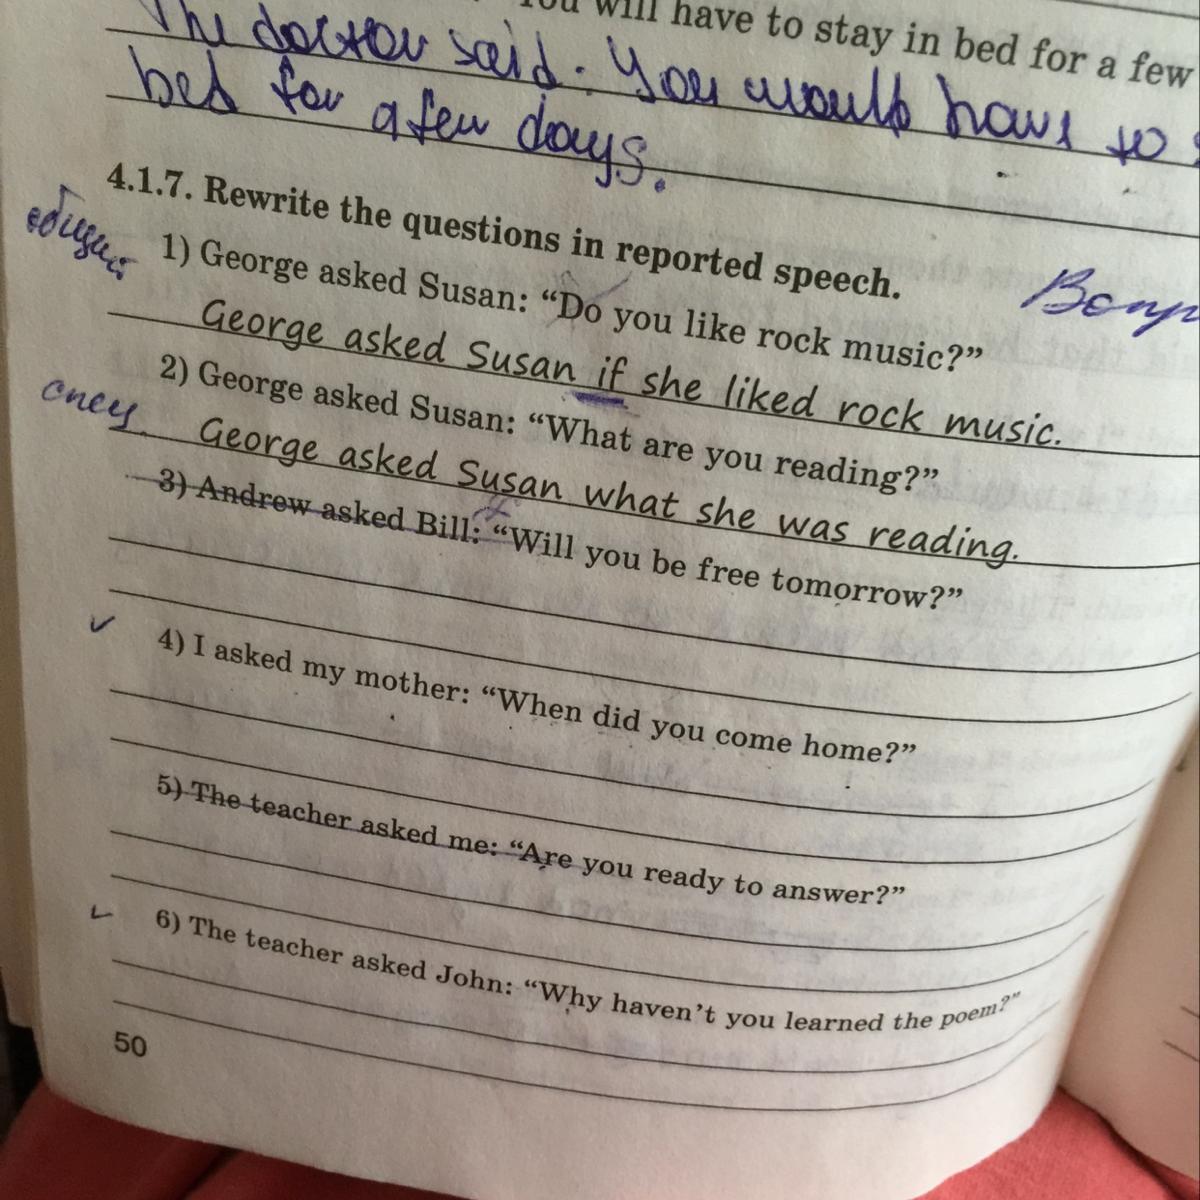 You will have to stay in bed for a few
The doctor said. You would have to
bed for a few days.
4.1.7. Rewrite the questions in reported speech.
общий
Вопр
1) George asked Susan: “Do you like rock music?”
George asked Susan if she liked rock music.
2) George asked Susan: “What are you reading?”
спец
George asked Susan what she was reading.
3) Andrew asked Bill: “Will you be free tomorrow?”
4) I asked my mother: “When did you come home?”
5) The teacher asked me: “Are you ready to answer?”
6) The teacher asked John: “Why haven’t you learned the poem?”
50